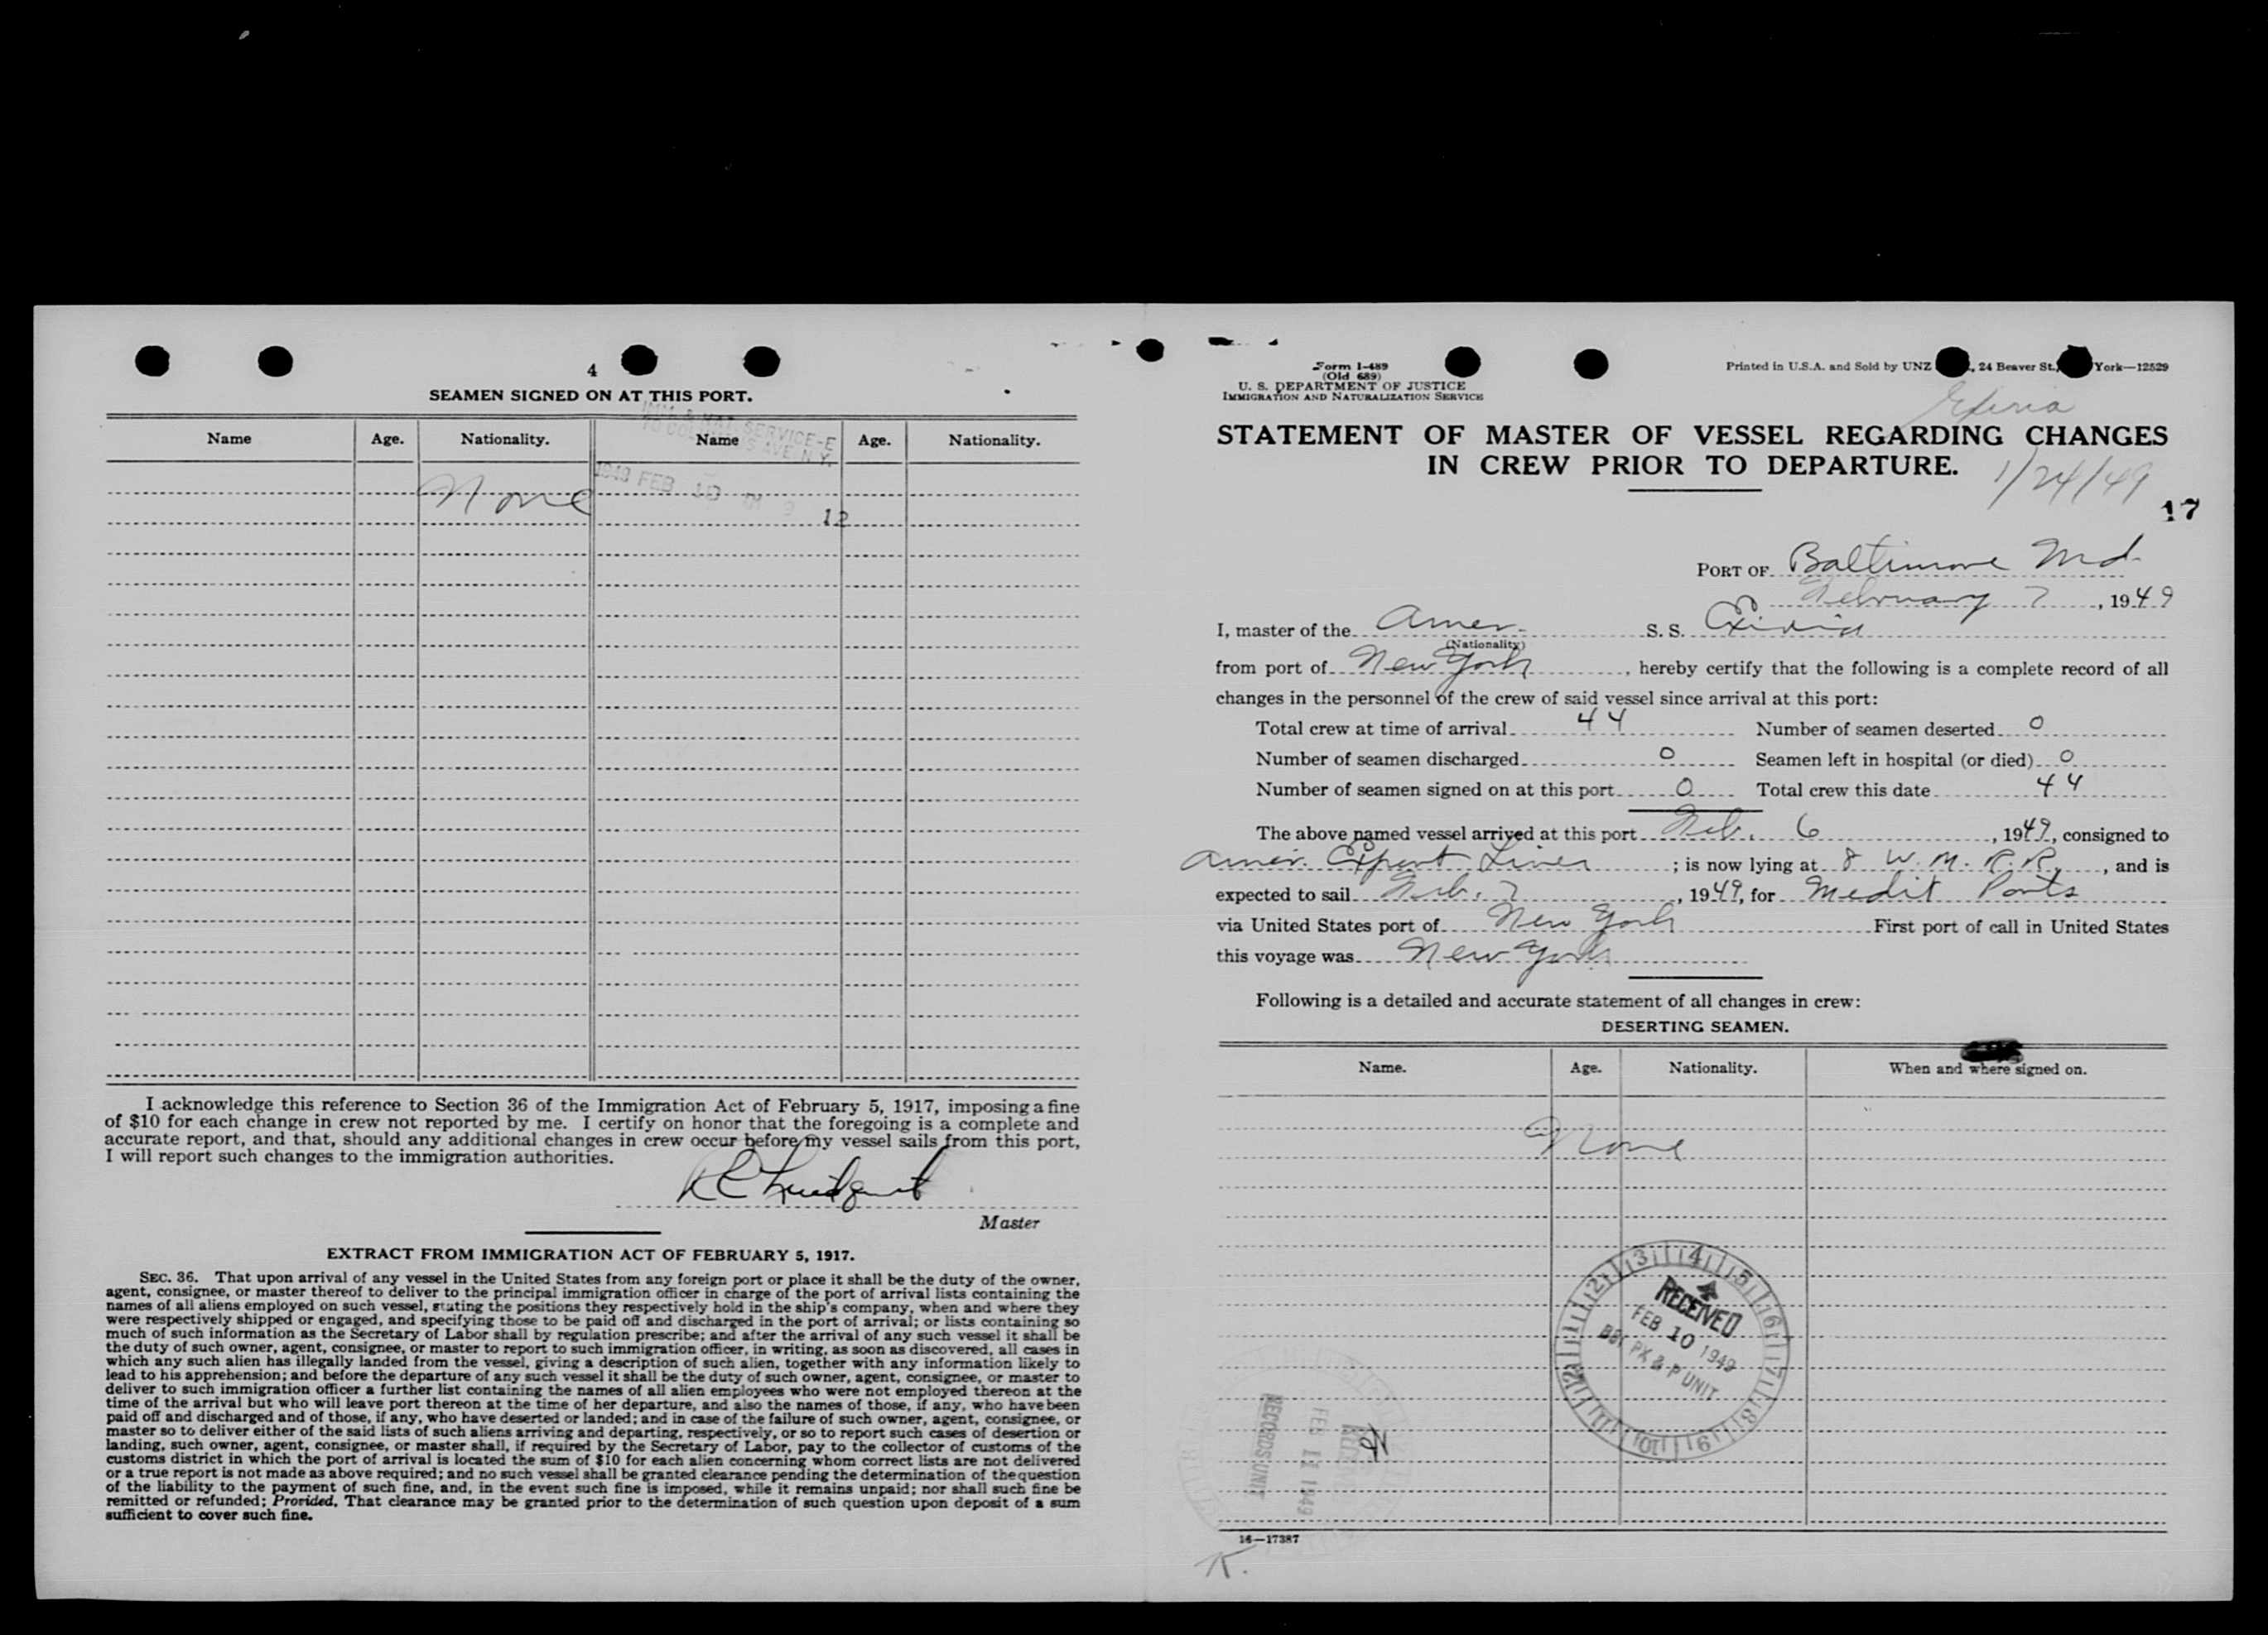 4
SEAMEN SIGNED ON AT THIS PORT.
IMM. & NAT. SERVICE-E
70 COLUMBUS AVE. N.Y.
Name Age. Nationality. Name Age. Nationality.
1949 FEB 10 9 12
None
I acknowledge this reference to Section 36 of the Immigration Act of February 5, 1917, imposing a fine
of $10 for each change in crew not reported by me. I certify on honor that the foregoing is a complete and
accurate report, and that, should any additional changes in crew occur before my vessel sails from this port,
I will report such changes to the immigration authorities.
Master
EXTRACT FROM IMMIGRATION ACT OF FEBRUARY 5, 1917.
SEC. 36. That upon arrival of any vessel in the United States from any foreign port or place it shall be the duty of the owner,
agent, consignee, or master thereof to deliver to the principal immigration officer in charge of the port of arrival lists containing the
names of all aliens employed on such vessel, stating the positions they respectively hold in the ship's company, when and where they
were respectively shipped or engaged, and specifying those to be paid off and discharged in the port of arrival; or lists containing so
much of such information as the Secretary of Labor shall by regulation prescribe; and after the arrival of any such vessel it shall be
the duty of such owner, agent, consignee, or master to report to such immigration officer, in writing, as soon as discovered, all cases in
which any such alien has illegally landed from the vessel, giving a description of such alien, together with any information likely to
lead to his apprehension; and before the departure of any such vessel it shall be the duty of such owner, agent, consignee, or master to
deliver to such immigration officer a further list containing the names of all alien employees who were not employed thereon at the
time of the arrival but who will leave port thereon at the time of her departure, and also the names of those, if any, who have been
paid off and discharged and of those, if any, who have deserted or landed; and in case of the failure of such owner, agent, consignee, or
master so to deliver either of the said lists of such aliens arriving and departing, respectively, or so to report such cases of desertion or
landing, such owner, agent, consignee, or master shall, if required by the Secretary of Labor, pay to the collector of customs of the
customs district in which the port of arrival is located the sum of $10 for each alien concerning whom correct lists are not delivered
or a true report is not made as above required; and no such vessel shall be granted clearance pending the determination of the question
of the liability to the payment of such fine, and, in the event such fine is imposed, while it remains unpaid; nor shall such fine be
remitted or refunded; Provided, That clearance may be granted prior to the determination of such question upon deposit of a sum
sufficient to cover such fine.
Form I-489
(Old 689)
U. S. DEPARTMENT OF JUSTICE
IMMIGRATION AND NATURALIZATION SERVICE
Printed in U.S.A. and Sold by UNZ , 24 Beaver St., York—12529
STATEMENT OF MASTER OF VESSEL REGARDING CHANGES
IN CREW PRIOR TO DEPARTURE.
1/24/49
17
PORT OF Baltimore Md.
February 7, 1949
I, master of the Amer. S. S.
(Nationality)
from port of New York, hereby certify that the following is a complete record of all
changes in the personnel of the crew of said vessel since arrival at this port:
Total crew at time of arrival 44 Number of seamen deserted 0
Number of seamen discharged 0 Seamen left in hospital (or died) 0
Number of seamen signed on at this port 0 Total crew this date 44
The above named vessel arrived at this port Feb. 6, 1949, consigned to
Amer. Export Lines; is now lying at 8 W. M. R. R., and is
expected to sail Feb. 7, 1949, for Medit Ports
via United States port of New York First port of call in United States
this voyage was New York
Following is a detailed and accurate statement of all changes in crew:
DESERTING SEAMEN.
Name. Age. Nationality. When and where signed on.
None
RECEIVED
FEB 10 1949
P UNIT
RECORDS UNIT
FEB 11 1949
16—17387
K.